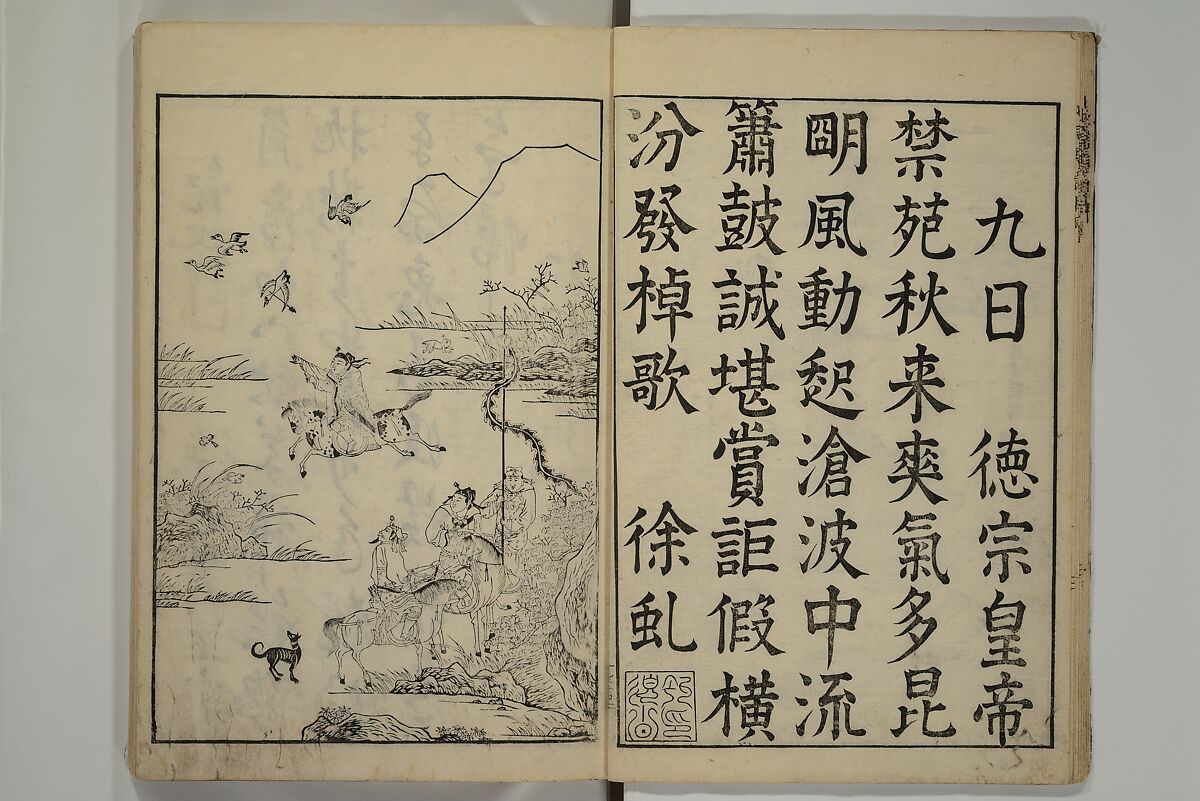 九日　徳宗皇帝
禁苑秋来爽氣多昆
朙風動起滄波中流
簫皷誠堪賞詎假横
汾發棹歌　徐虬